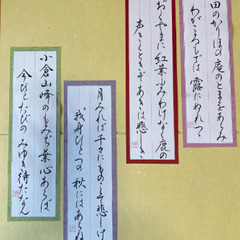 田のかりほの庵のとまをあらみ
わがころもでは 露にぬれつ
おくやまに紅葉ふみわけなく鹿の
声きくときぞあきは悲し
月みれば千々にものこそ悲しけ
我身ひとつの 秋にはあらね
小倉山峰のもみぢ葉心あらば
今ひとたびのみゆき待たなん